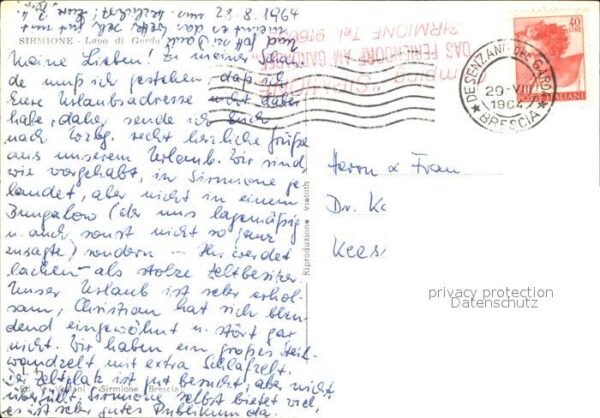 28.8.1964
SIRMIONE - Lago di Garda
Meine Lieben! Zu meiner Schan-
de muß ich gestehen, daß ich
Eure Urlaubsadresse nicht dabei
habe, daher sende ich Euch
nach Wzbg. recht herzliche Grüße
aus unserem Urlaub. Wir sind
wie vorgehabt, in Sirmione ge-
landet, aber nicht in einem
Bungalow (der uns lagemäßig
u. auch sonst nicht so ganz
zusagte) sondern - Ihr werdet
lachen - als stolze Zeltbesitzer.
Unser Urlaub ist sehr erhol-
sam, Christian hat sich blen-
dend eingewöhnt u. stört gar
nicht. Wir haben ein großes Steil-
wandzelt mit extra Schlafzelt.
Der Zeltplatz ist gut besucht, aber nicht
überfüllt. Sirmione selbst bietet viel,
es ist sehr gutes Publikum da.
Sirmione Brescia
Riproduzione vietata
DAS FERIENDORF AM GARDASEE
SIRMIONE Tel.
DESENZANO DEL GARDA
29-VIII
1964
BRESCIA
40
LIRE
POSTE ITALIANE
Herrn & Frau
Dr. K
Kees
privacy protection
Datenschutz